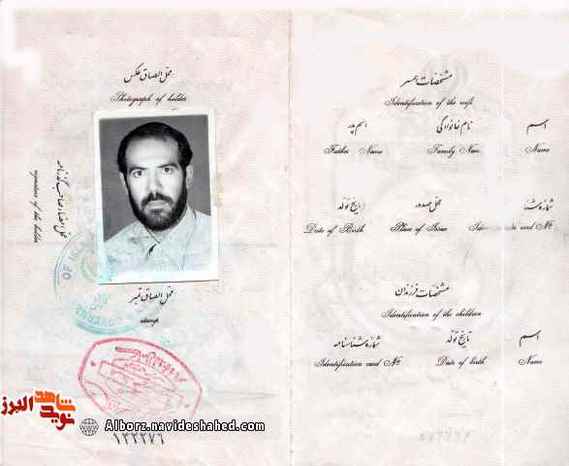 محل الصاق عکس
Photograph of holder
محل امضاء صاحب گذرنامه
signature of the holder
محل الصاق تمبر
stamps
شاهد
نوید
البرز
Alborz.navideshahed.com
۱۲۲۲۷۶
مشخصات همسر
Identification of the wife
اسم
نام خانوادگی
اسم پدر
Name
Family Name
Father Name
شماره شنا
محل صدور
تاریخ تولد
Date of Birth
Place of Issue
card Nº
مشخصات فرزندان
Identification of the children
اسم
تاریخ تولد
شماره شناسنامه
Name
Date of birth
Identification card Nº